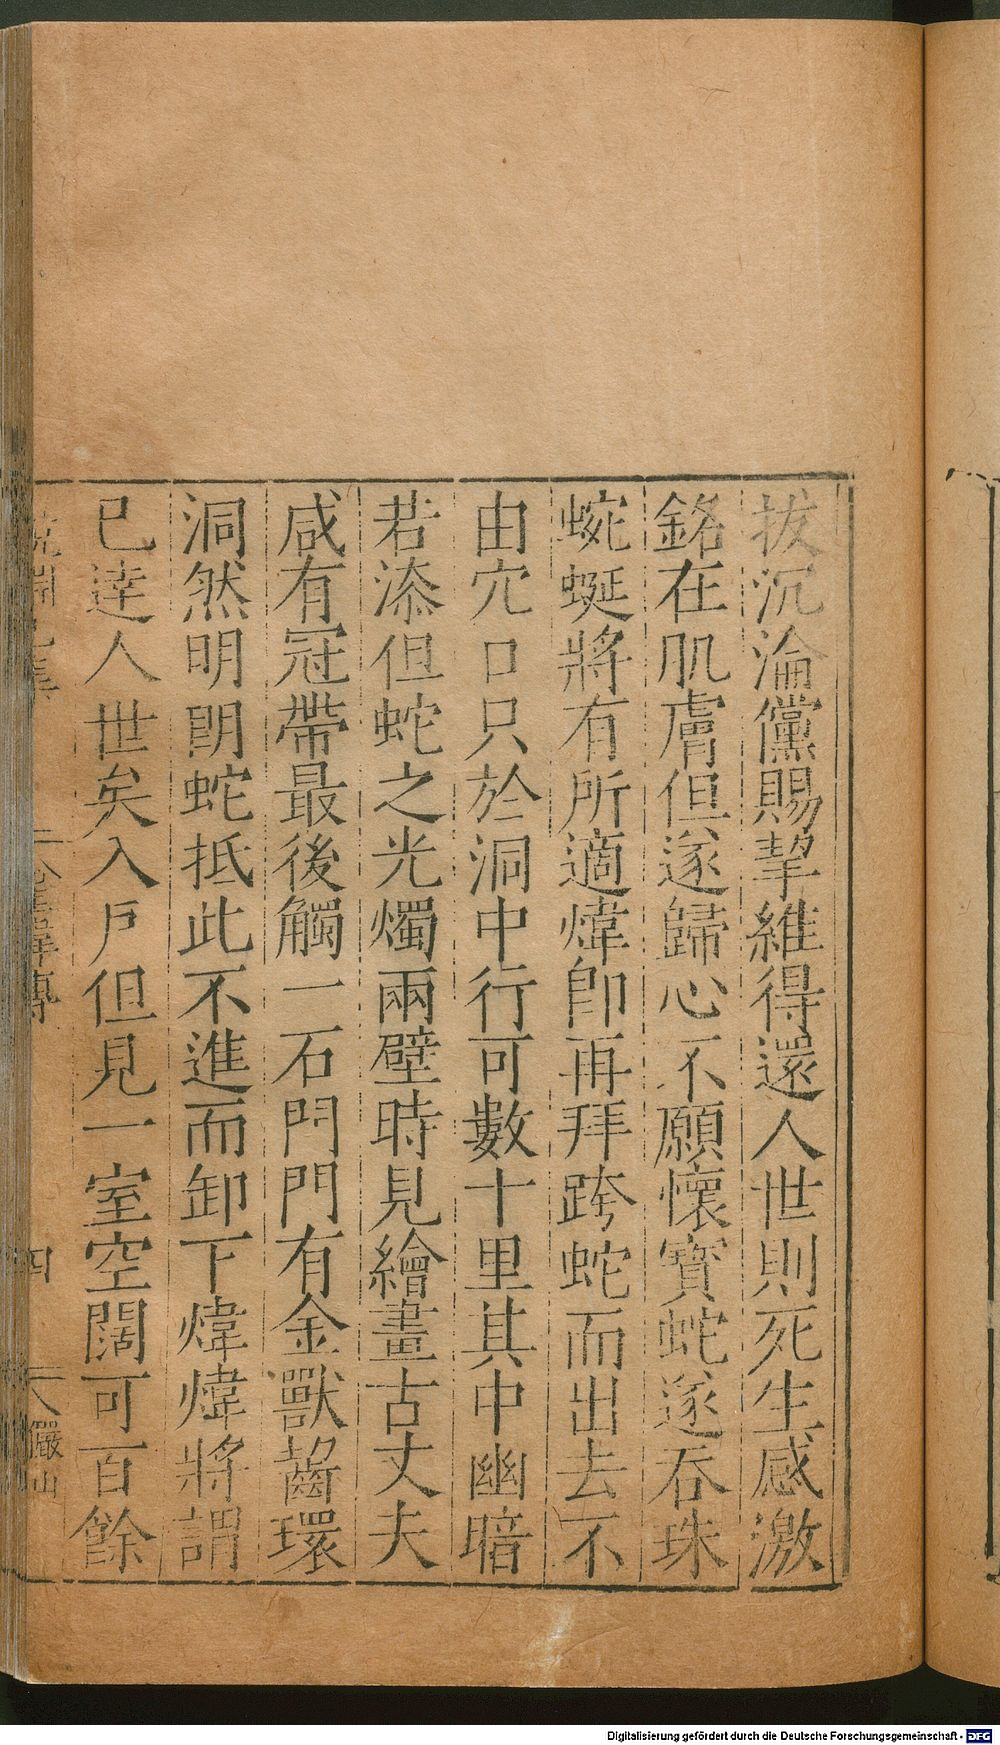 拔沉淪儻賜挈維得還人世則死生感激
銘在肌膚但遂歸心不願懷寳蛇遂吞珠
蜿蜒將有所適煒即再拜跨蛇而出去不
由穴口只於洞中行可數十里其中幽暗
若漆但蛇之光燭兩壁時見繪畫古丈夫
咸有冠帶最後觸一石門門有金獸齧環
洞然明朗蛇抵此不進而卸下煒煒將謂
已達人世矣入戶但見一室空闊可百餘
四
儼山
Digitalisierung gefördert durch die Deutsche Forschungsgemeinschaft - DFG